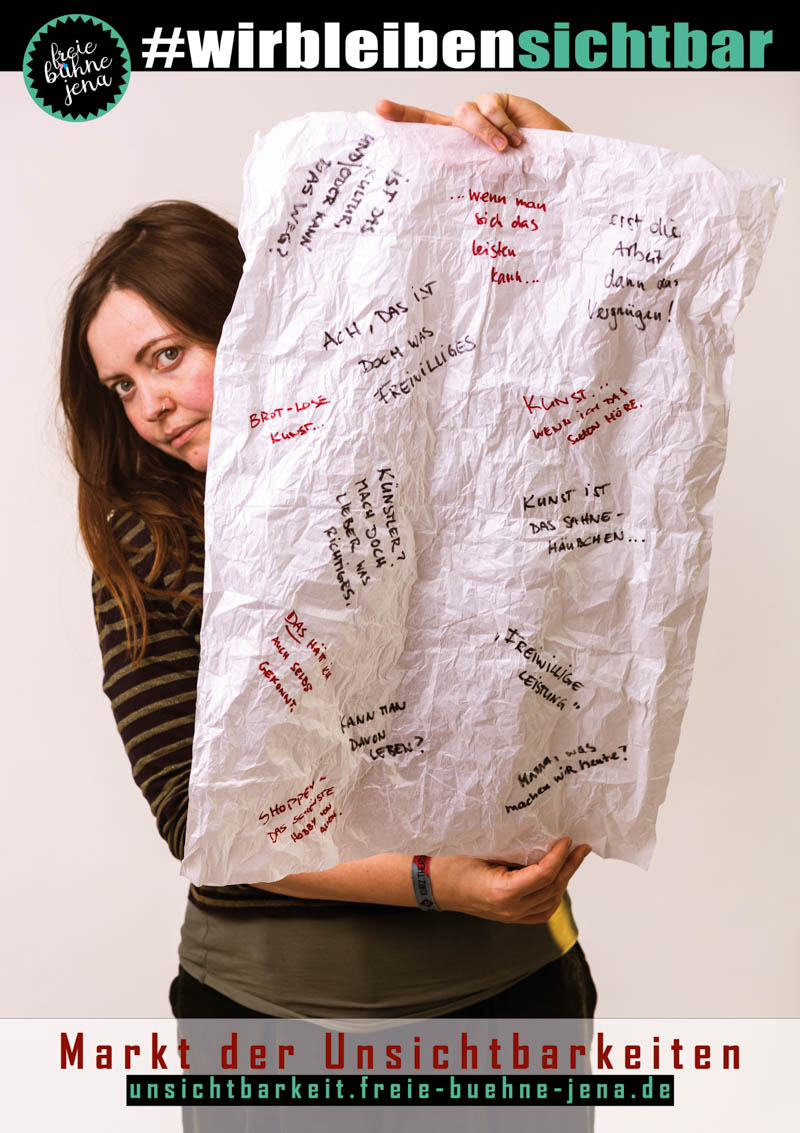 freie
bühne
jena
#wirbleibensichtbar
IST DAS
KULTUR,
UND/ODER KANN
DAS WEG?
...wenn man
sich das
leisten
kann...
erst die
Arbeit,
dann das
Vergnügen!
ACH, DAS IST
DOCH WAS
FREIWILLIGES
BROT-LOSE
KUNST...
KUNST...
WENN ICH DAS
SCHON HÖRE.
KÜNSTLER?
MACH DOCH
LIEBER WAS
RICHTIGES.
KUNST IST
DAS SAHNE-
HÄUBCHEN...
DAS HÄTT ICH
AUCH SELBS
GEKONNT.
"FREIWILLIGE
LEISTUNG"
KANN MAN
DAVON
LEBEN?
MAMA, WAS
machen wir heute?
SHOPPEN -
DAS SCHÖNSTE
HOBBY VON
ALLEN.
Markt der Unsichtbarkeiten
unsichtbarkeit.freie-buehne-jena.de